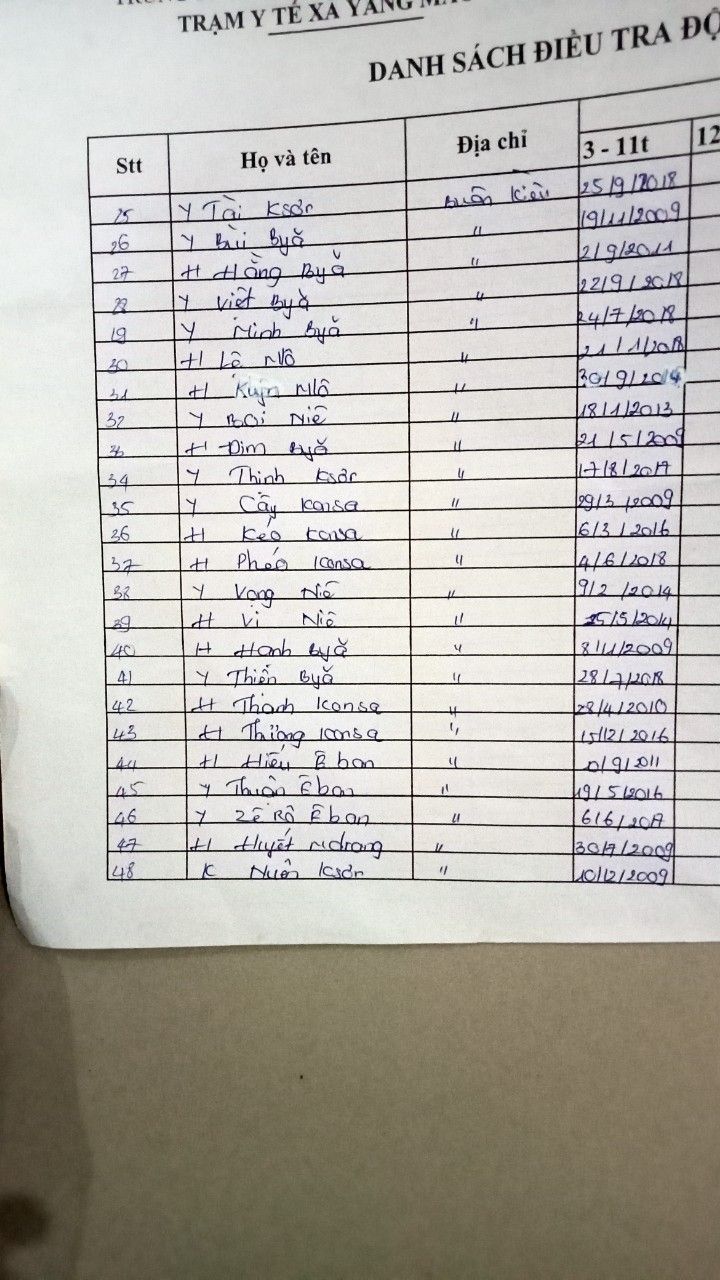 TRẠM Y TẾ XA YANG
DANH SÁCH ĐIỀU TRA ĐỘ
Stt Họ và tên Địa chỉ 3 - 11t 12
25 Y Tài Ksơr Buôn Kiều 25/9/2018
26 Y Bùi Byă " 19/11/2009
27 H Hằng Byă " 2/9/2011
28 Y Việt Byă " 22/9/2018
19 Y Minh Byă " 24/7/2018
30 H Lê Mlô " 21/1/2018
31 H Kuỳn Mlô " 30/9/2014
32 Y Bai Niê " 18/1/2013
H Đim Byă " 21/5/2009
34 Y Thinh Ksơr " 17/8/2017
35 Y Cầy Konsa " 29/3/2009
36 H Kéo Konsa " 6/3/2016
37 H Phéo Konsa " 4/6/2018
38 Y Vọng Niê " 9/2/2014
39 H Vi Niê " 25/5/2014
40 H Hanh Byă " 8/11/2009
41 Y Thiến Byă " 28/7/2018
42 H Thanh Konsa " 28/4/2010
43 H Thương Konsa " 15/12/2016
44 H Hiếu Êban " /9/2011
45 Y Thuân Êban " 19/5/2016
46 Y Zê Rô Êban " 6/6/2017
47 H Huyết Mdrang " 30/7/2009
48 K Nuên Ksơr " 10/12/2009